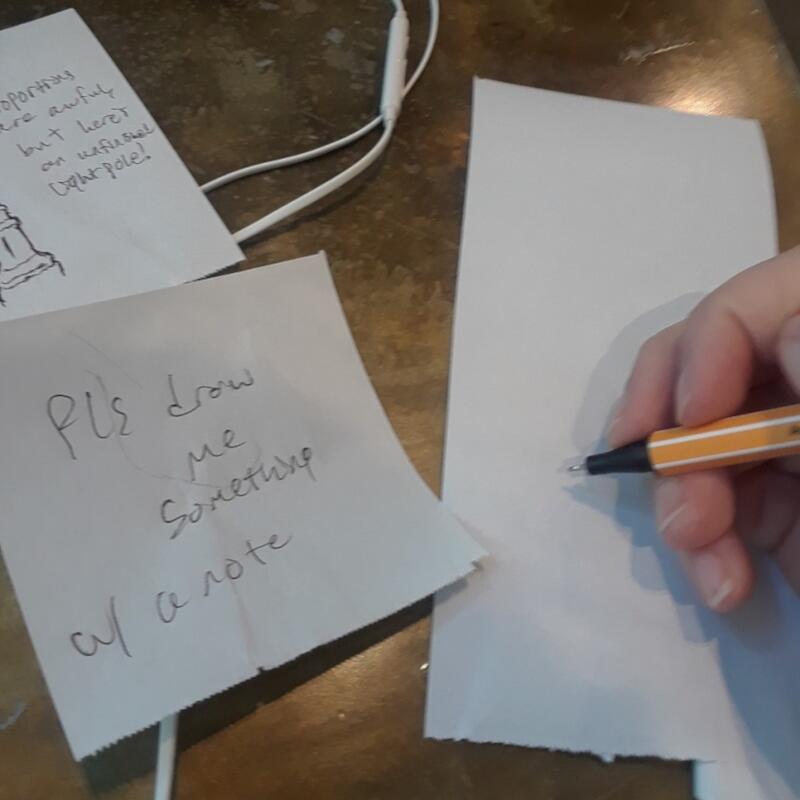 oportions
are awful,
but here's
an unfinished
lightpole!
Pls draw
me
something
w/ a note